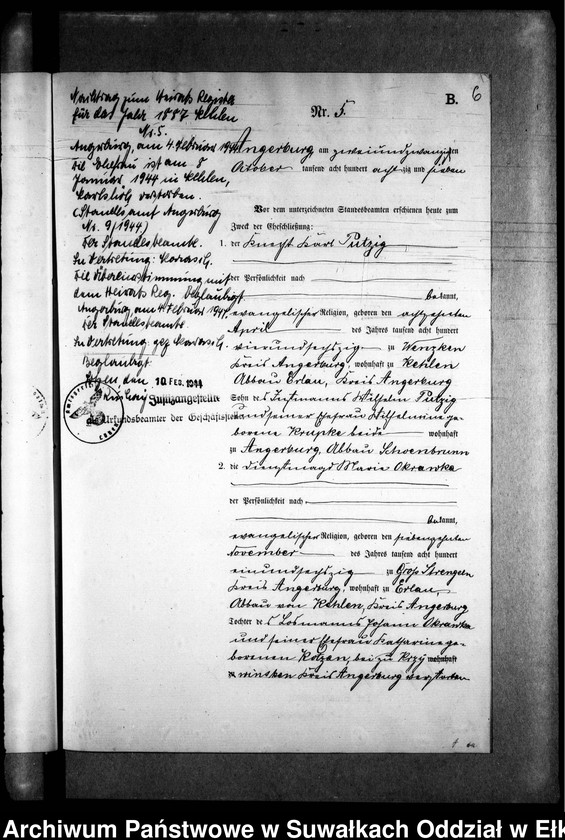 B. 6
Nr. 5.
Nachtrag zum Heirats Register
für das Jahr 1887 Kehlen
Nr. 5.
Angerburg, am 4. Februar 1944
Die Ehefrau ist am 8
Januar 1944 in Kehlen,
Karlshöh verstorben.
(Standesamt Angerburg
Nr. 9/1944)
Der Standesbeamte.
In Vertretung:
Die Übereinstimmung mit
dem Heirats Reg. beglaubigt
Angerburg, am 4. Februar 1944.
Der Standesbeamte
In Vertretung gez.
Beglaubigt
den 10. FEB. 1944
Justizangestellte
als Urkundsbeamter der Geschäftsstelle
Angerburg am zweiundzwanzigsten
October tausend acht hundert achtzig und sieben
Vor dem unterzeichneten Standesbeamten erschienen heute zum
Zweck der Eheschließung:
1. der Knecht Karl Putzig
der Persönlichkeit nach
bekannt,
evangelischer Religion, geboren den achtzehnten
April des Jahres tausend acht hundert
vierundsechszig zu Wenzken
Kreis Angerburg, wohnhaft zu Kehlen
Abbau Erlau, Kreis Angerburg
Sohn des Wilhelm Putzig
und seiner Ehefrau Wilhelmine ge-
borene Krupke beide wohnhaft
zu Angerburg, Abbau Schoenbrunn
2. die Dienstmagd Marie Okrawka
der Persönlichkeit nach
bekannt,
evangelischer Religion, geboren den siebenzehnten
November des Jahres tausend acht hundert
einundsechszig zu Groß Strengeln
Kreis Angerburg, wohnhaft zu Erlau,
Abbau von Kehlen, Kreis Angerburg
Tochter des Losmanns Johann Okrawka
und seiner Ehefrau Katharine ge-
borenen Kolzan, beide zu Krzy wohnhaft
winsken Kreis Angerburg verstorben
Archiwum Państwowe w Suwałkach Oddział w Ełk